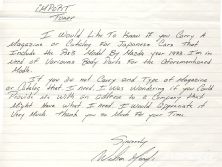 IMPORT
Tuner
I Would Like To Know if you Carry A
Magazine or Catalog For Japanese Cars That
Include The Part Model By Mazda year 1993. I'm in
need of Various Body Parts For the Aforementioned
Model.
If you do not Carry and Type of Magazine
or Catalog that I need. I was Wondering if you Could
Provide me With an Address to a Company that
Might Have What I need. I Would Appreciate it
Very Much. Thank you so Much For your Time.
Sincerely